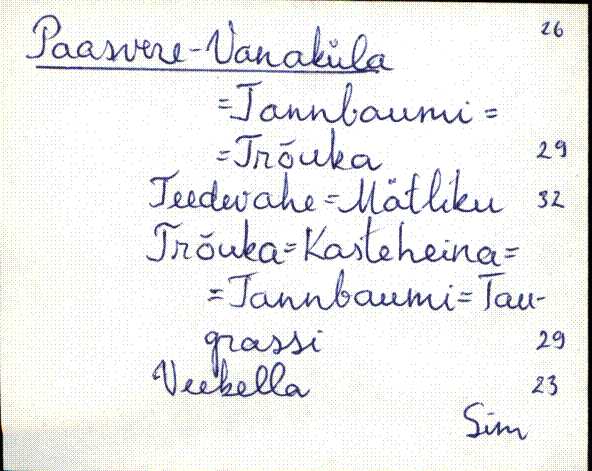 26
Paasvere-Vanaküla
=Tannbaumi=
=Trõuka 29
Teedevahe=Mätliku 32
Trõuka=Kasteheina=
=Tannbaumi=Tau-
grassi 29
Veekella 23
Sim